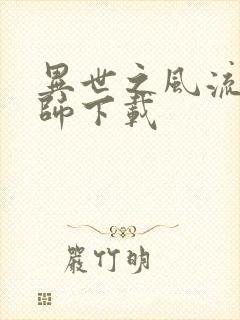 異世之風流
師下載
嚴竹明